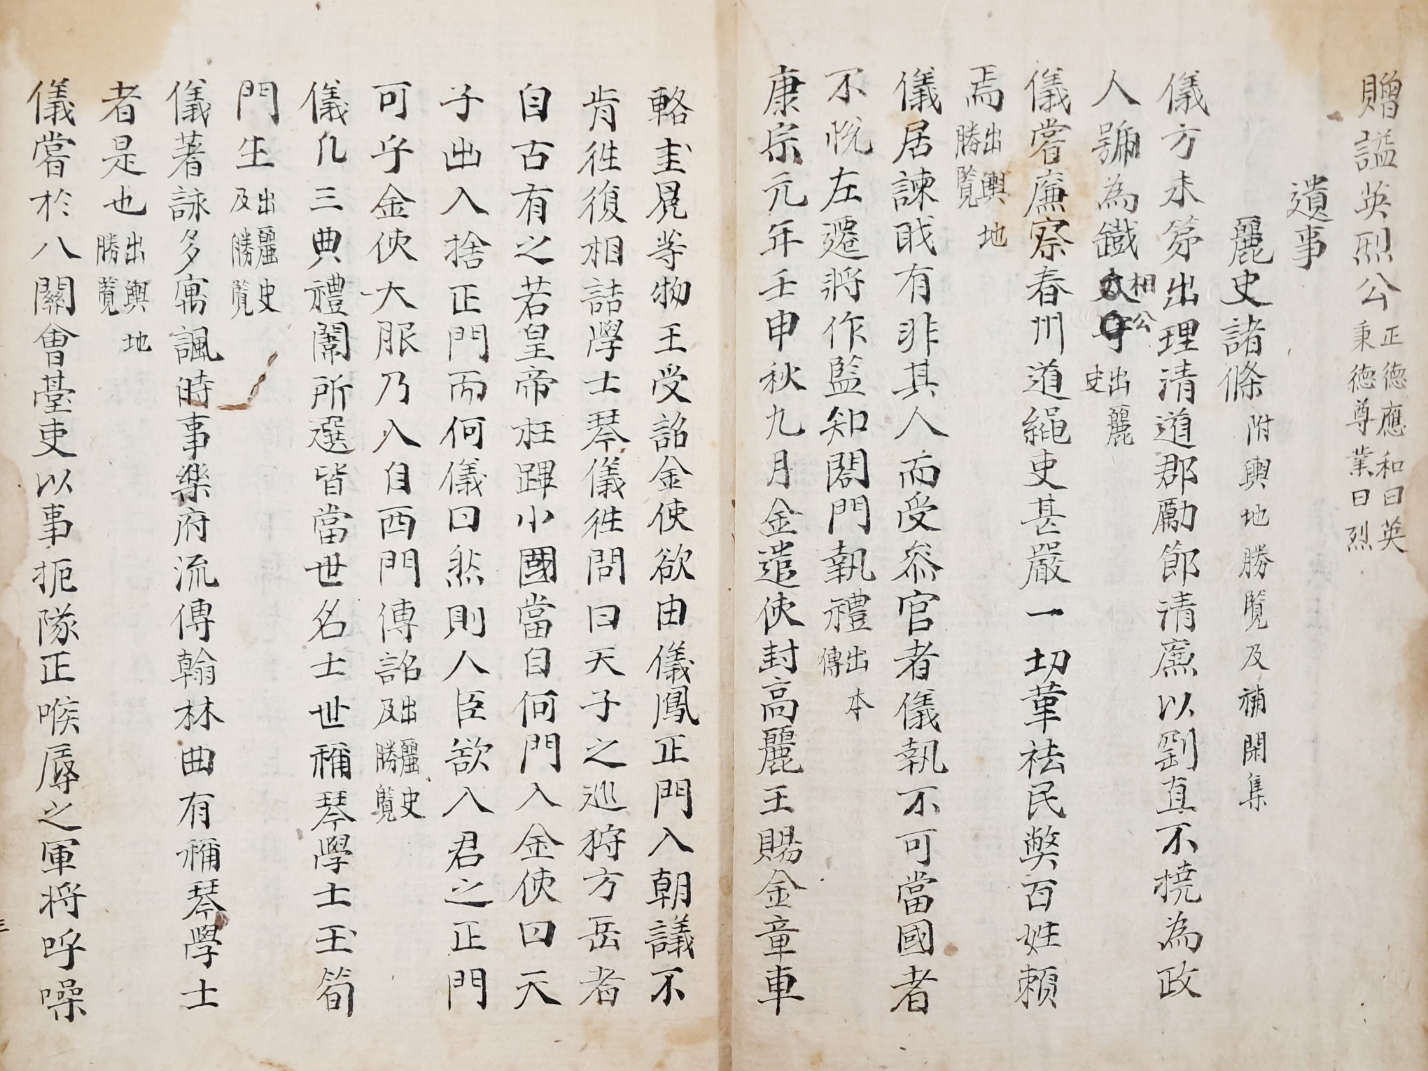 贈諡英烈公正德應和曰英秉德尊業曰烈
遺事
麗史諸條附輿地勝覽及補閑集
儀方未第出理清道郡勵節清廉以剛直不撓為政
人號為鐵太守相公出麗史
儀嘗廉察春州道繩吏甚嚴一切革祛民弊百姓賴
焉出輿地勝覽
儀居諫職有非其人而受叅官者儀執不可當國者
不悅左遷將作監知閤門執禮出本傳
康宗元年壬申秋九月金遣使封高麗王賜金章車
輅圭冕等物王受詔金使欲由儀鳳正門入朝議不
肯徃復相詰學士琴儀徃問曰天子之巡狩方岳者
自古有之若皇帝枉蹕小國當自何門入金使曰天
子出入捨正門而何儀曰然則人臣欲入君之正門
可乎金使大服乃入自西門傳詔出麗史及勝覽
儀凡三典禮闈所選皆當世名士世稱琴學士玉筍
門生出麗史及勝覽
儀著詠多寓諷時事樂府流傳翰林曲有稱琴學士
者是也出輿地勝覽
儀嘗於八關會臺吏以事扼隊正喉辱之軍將呼噪